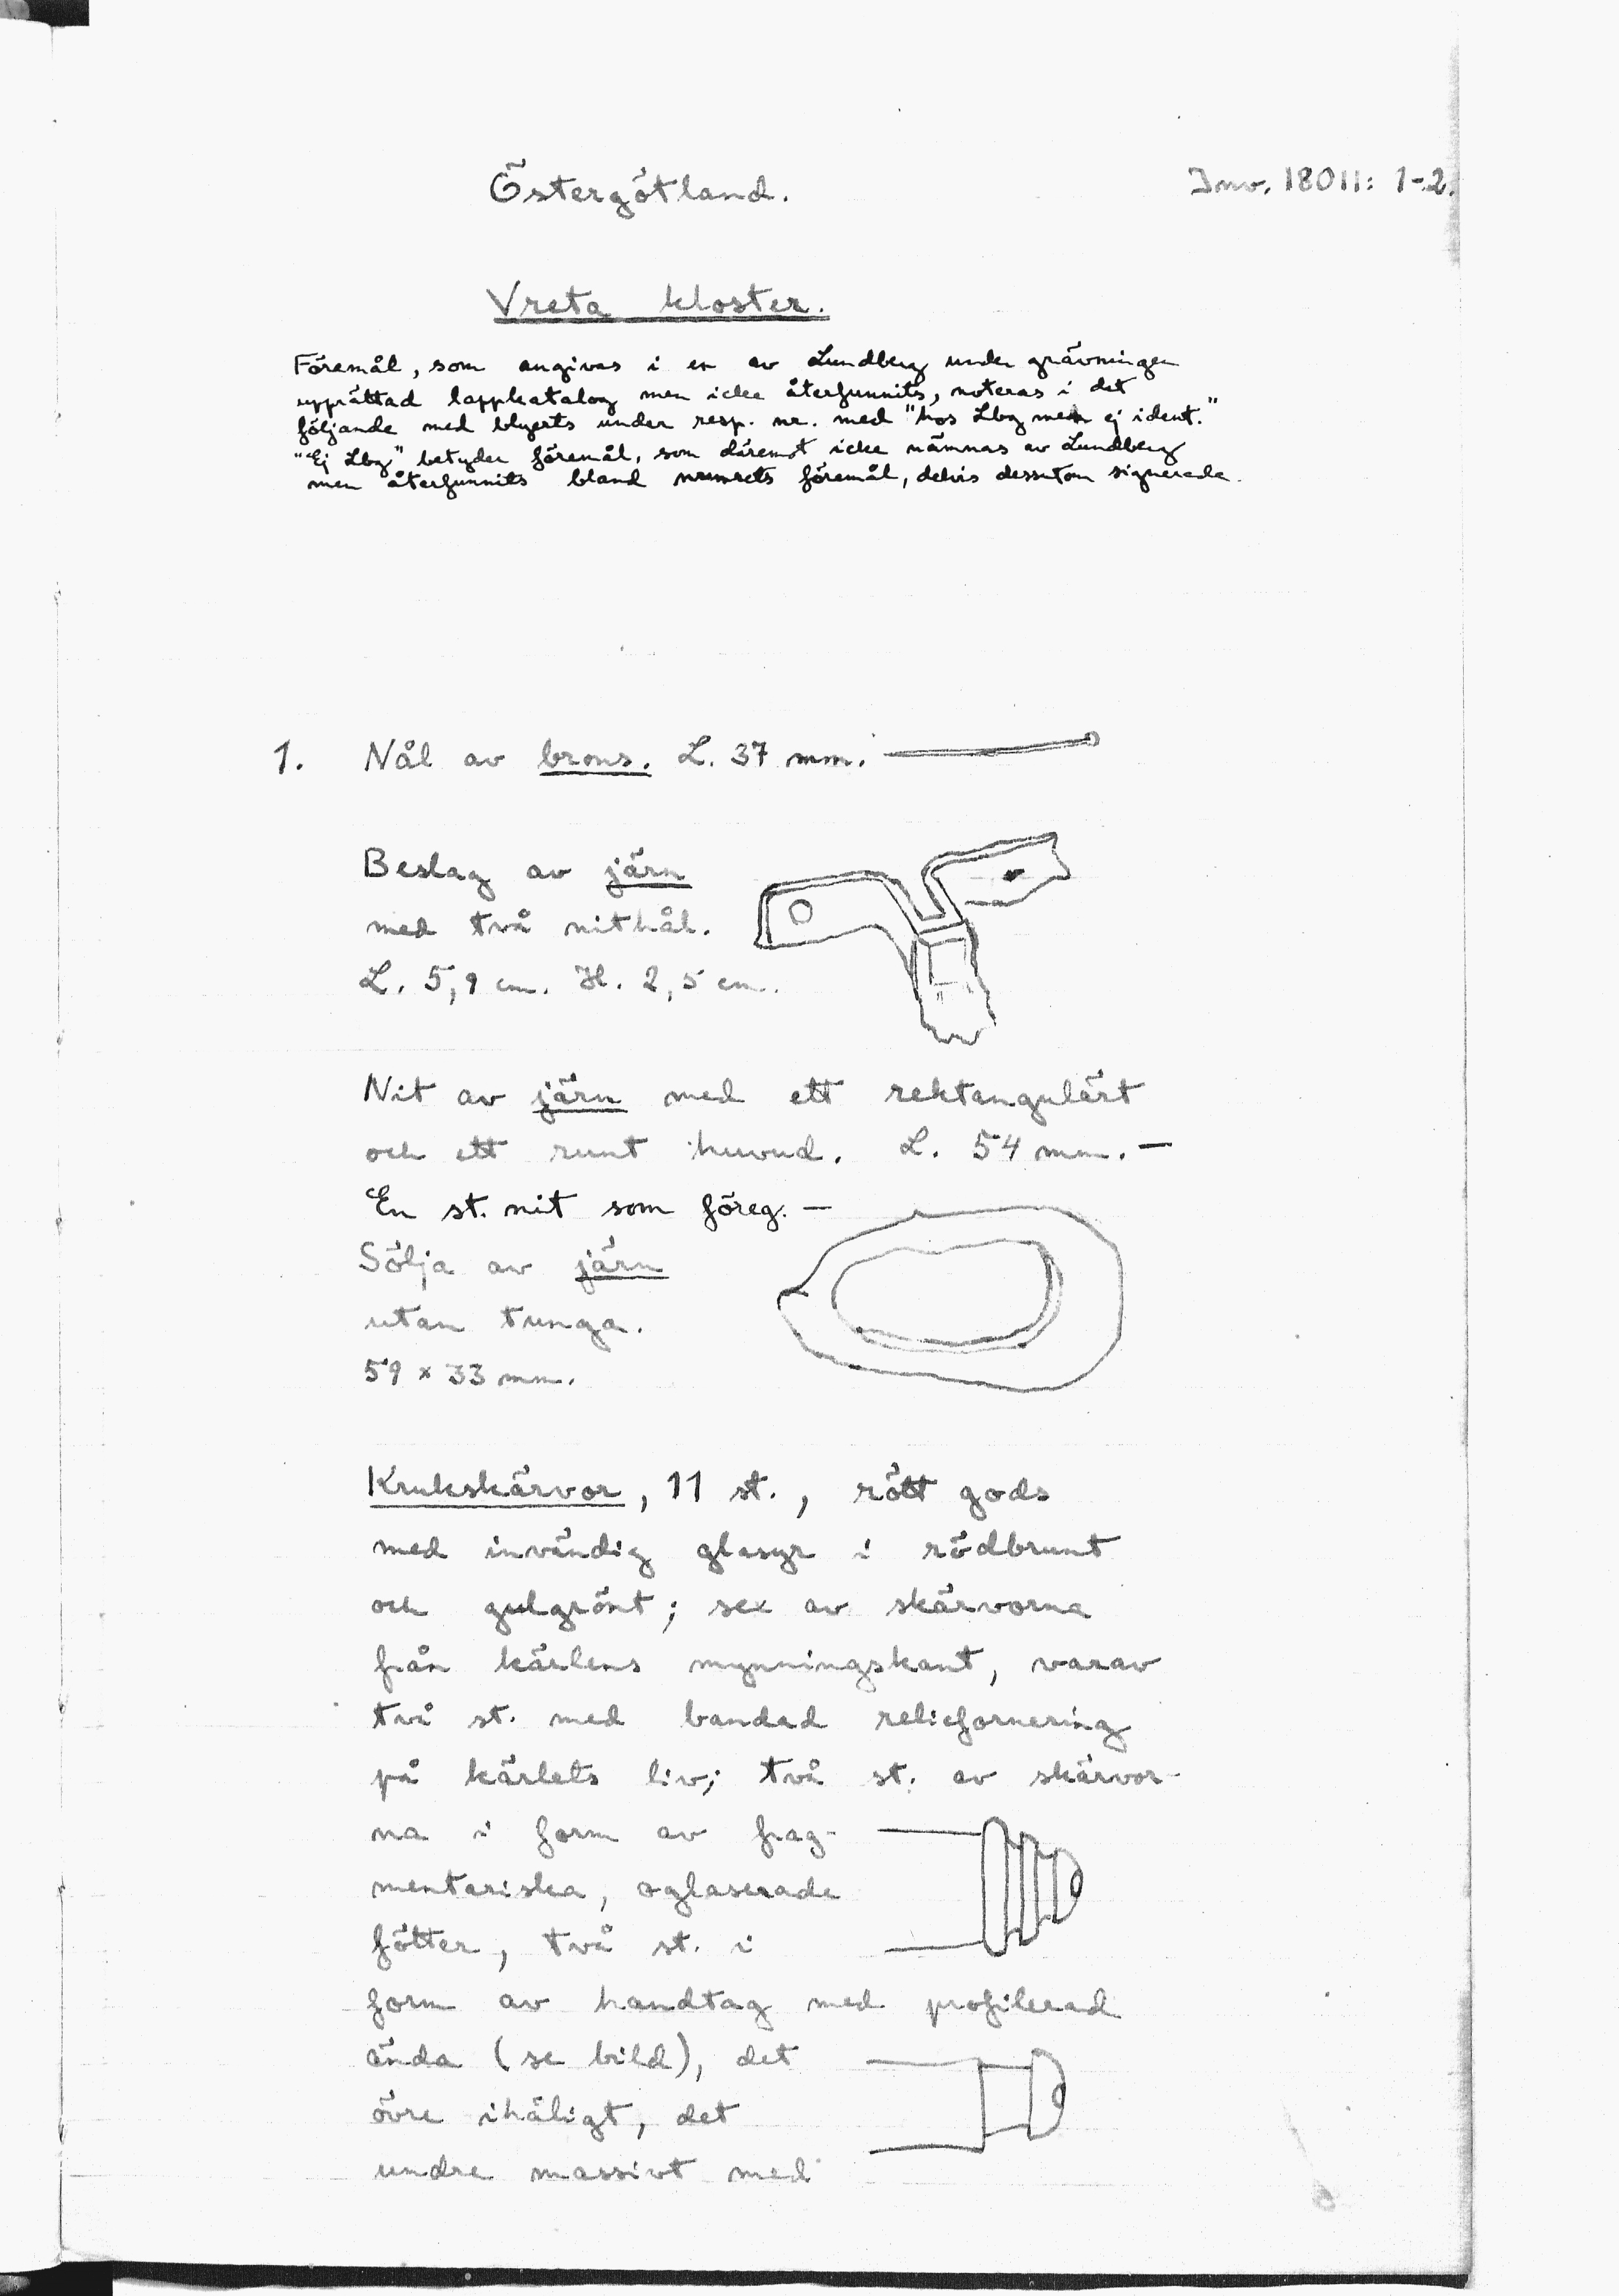 Östergötland.
Inv. 18011: 1-2.
Vreta kloster.
Föremål, som angivas i en av Lundberg under grävningen
upprättad lappkatalog men icke återfunnits, noteras i det
följande med blyerts under resp. nr. med "hos Lbg men ej ident."
"Ej Lbg" betyder föremål, som däremot icke nämnas av Lundberg
men återfunnits bland numrets föremål, delvis dessutom signerade.
1. Nål av brons. L. 37 mm.
Beslag av järn
med två nithål.
L. 5,9 cm. H. 2,5 cm.
Nit av järn med ett rektangulärt
och ett runt huvud. L. 54 mm. —
En st. nit som föreg. —
Sölja av järn
utan tunga.
59 x 33 mm.
Krukskärvor, 11 st., rött gods
med invändig glasyr i rödbrunt
och gulgrönt; sex av skärvorna
från kärlens mynningskant, varav
två st. med bandad reliefornering
på kärlets liv; två st. av skärvor-
na i form av frag-
mentariska, oglaserade
fötter, två st. i
form av handtag med profilerad
ända (se bild), det
övre ihåligt, det
undre massivt med